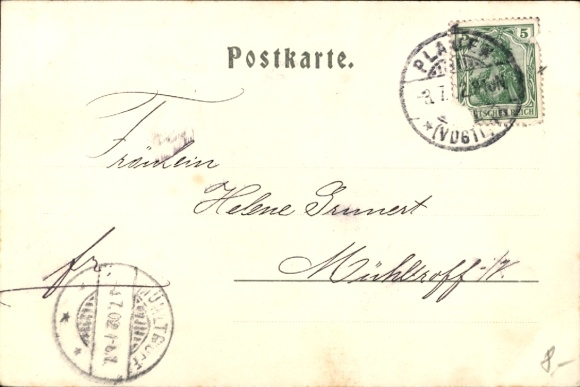 Postkarte.
5
PLAUEN
DEUTSCHES REICH
(VOGTL.)
Fräulein
Helene Grunert
Mühltroff i/V.
fr.
MÜHLTROFF
7.02
8,-